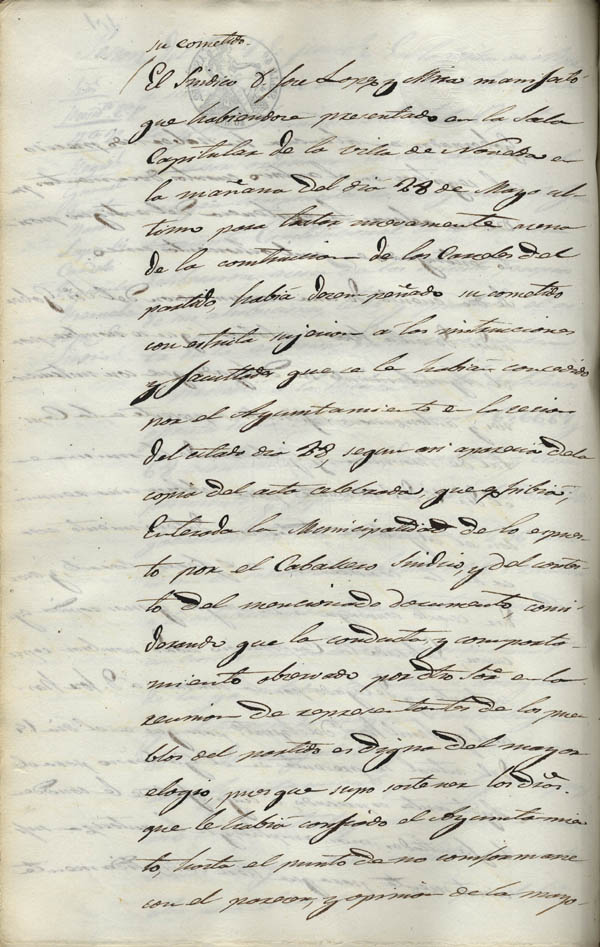 su cometido.
El Sindico D. Jose Lopez y Mira manifestó
que habiendose presentado en la Sala
Capitular de la villa de Novelda en
la mañana del dia 28 de Mayo ul-
timo para tratar nuevamente acerca
de la construccion de las Carceles del
partido, habia desempeñado su cometido
con estricta sujecion a las instrucciones
y facultades que se le habian concedido
por el Ayuntamiento en la secion
del citado dia 28, segun asi aparecia de la
copia del acta celebrada, que exhibia,
Enterada la Municipalidad de lo espues-
to por el Caballero Sindico, y del conteni-
to del mencionado documento, consi-
derando que la conducta y comporta-
miento observado por dho Sor. en la
reunion de representantes de los pue-
blos del partido es digna del mayor
elogio, pues que supo sostener los dros.
que le habia confiado el Ayuntamien-
to, hasta el punto de no conformarse
con el parecer, y opinion de la mayo-